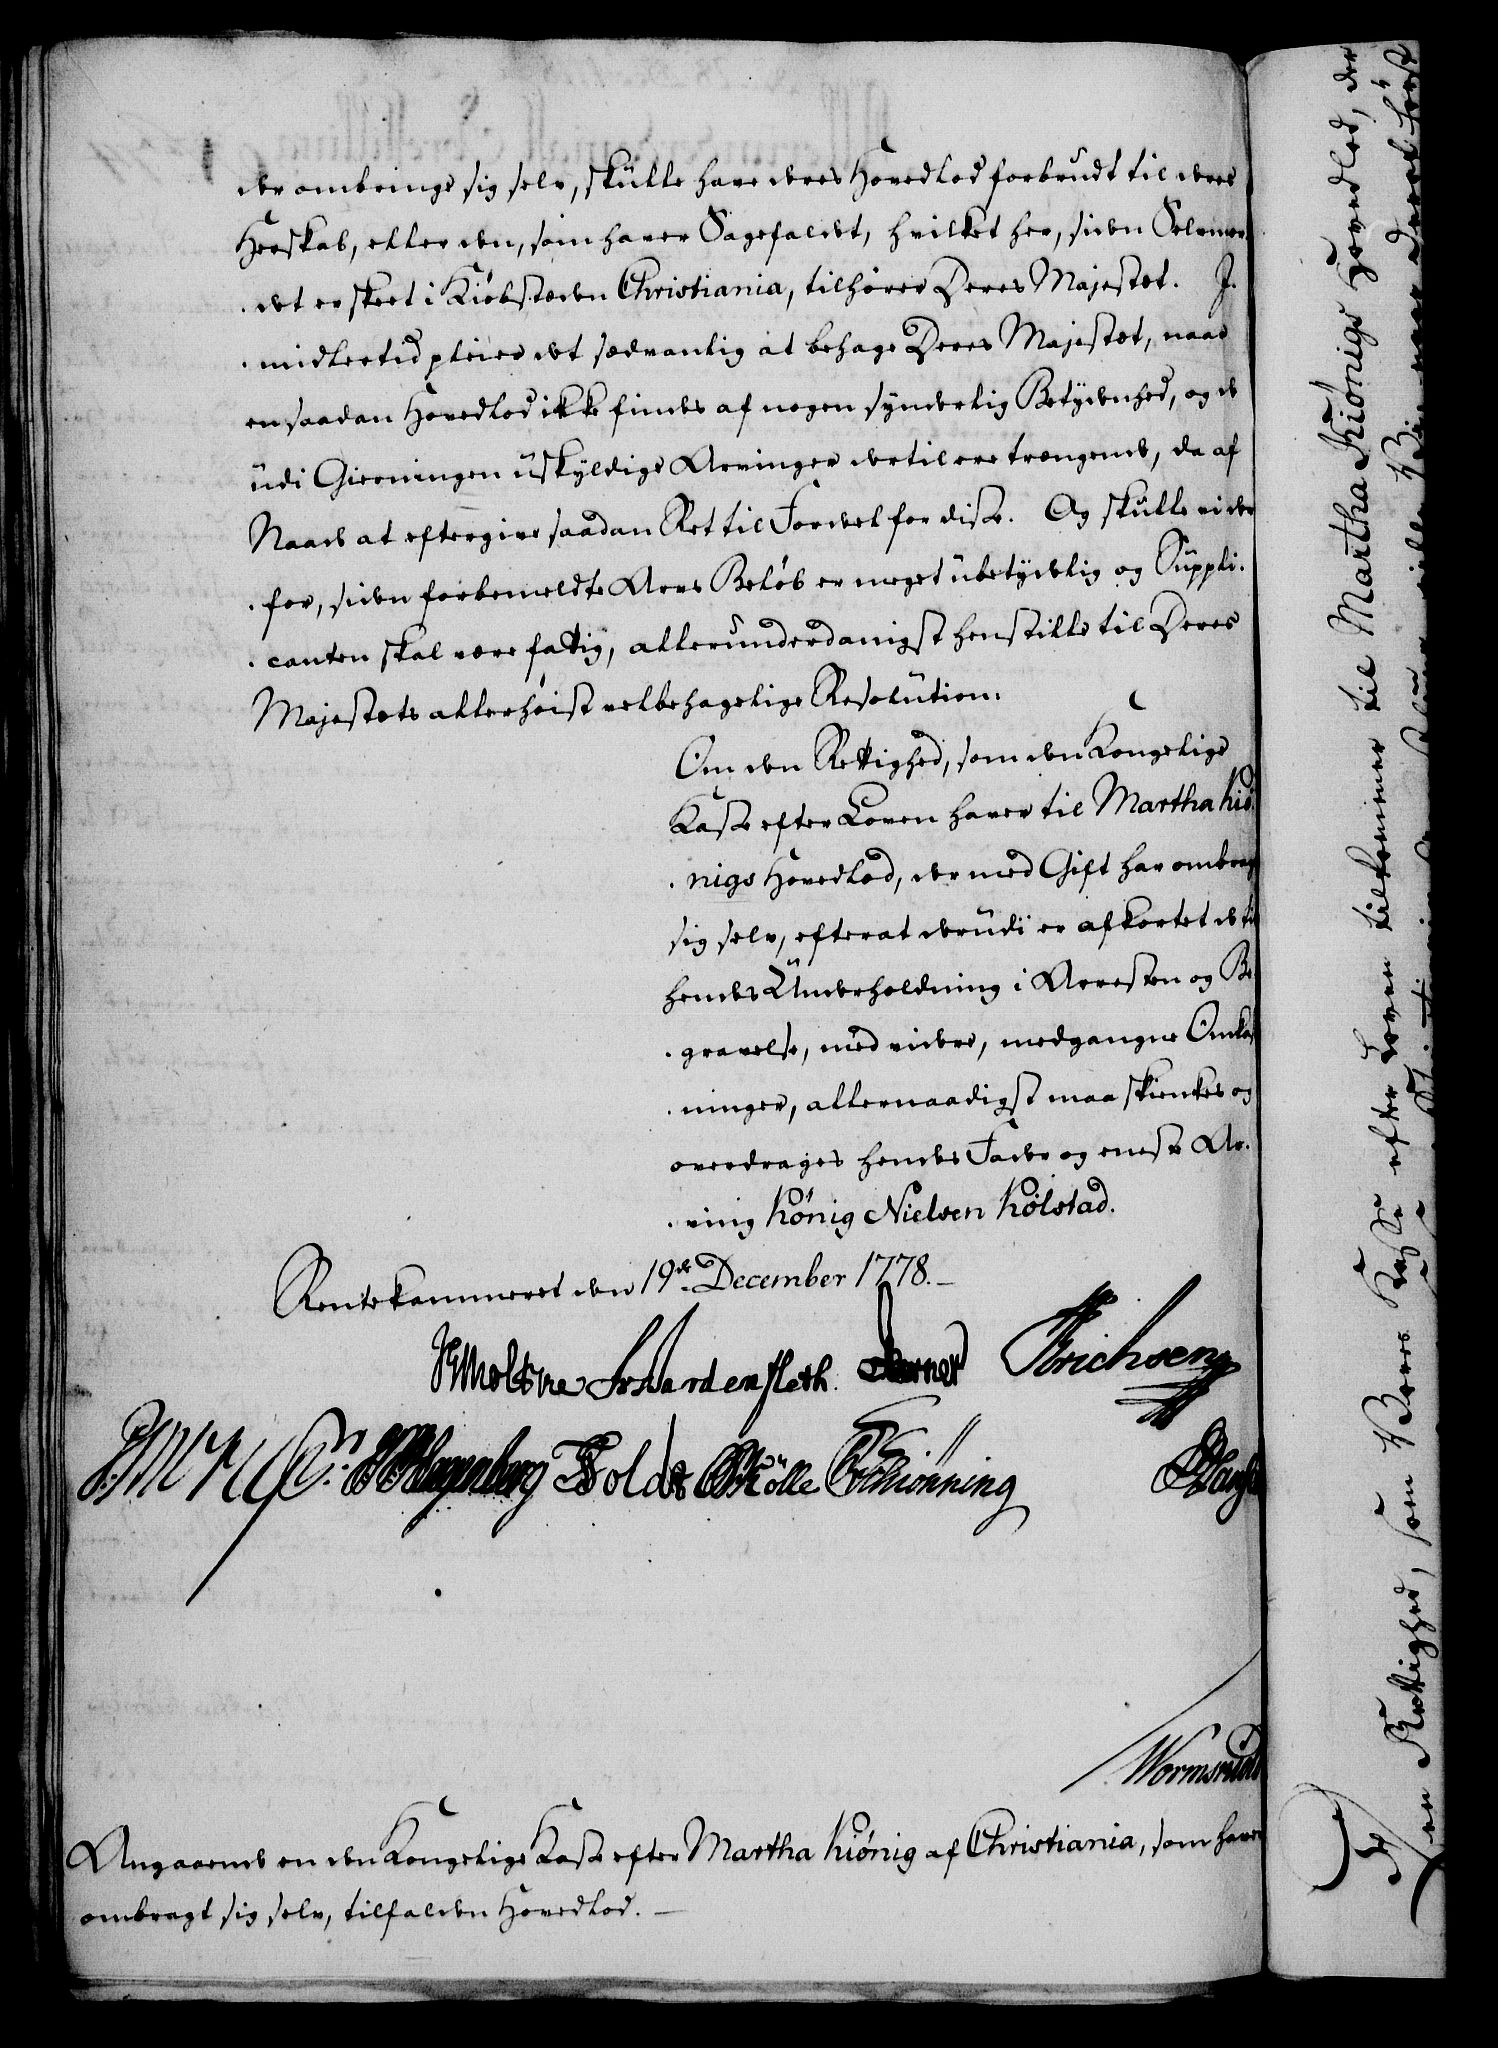 der ombringe sig selv, skulle have deres Hovedlod forbrudt til deres
Herskab, eller den, som haver Sagefaldet, hvilket her, siden Selvmor-
det er skeet i Kiøbstæden Christiania, tilhører Deres Majestæt. J-
midlertid pleier det sædvanlig at behage Deres Majestæt, naar
en saadan Hovedlod ikke findes af nogen synderlig Betydenhed, og de
udi Gierningen uskyldige Arvinger dertil ere trængende, da af
Naade at eftergive saadan Ret til Fordeel for disse. Og skulle vi der-
for, siden forbemeldte Arvs Beløb er meget ubetydelig og Suppli-
canten skal være fattig, allerunderdanigst henstille til Deres
Majestæts allerhøist velbehagelige Resolution:
Om den Rettighed, som den Kongelige
Kasse efter Loven haver til Martha Kiø-
nigs Hovedlod, der med Gift har ombragt
sig selv, efterat derudi er afkortet de til
hendes Underholdning i Arresten og Be-
gravelse, med videre, medgangne Omkost-
ninger, allernaadigst maa skienkes og
overdrages hendes Fader og eneste Ar-
ving König Nielsen Kølstad.
Rentekammeret den 19de December 1778.
HMoltke Schardenfleth. Berner Erichsen
Hagenberg Holdt Mölle Schiønning
Wormskiold
Angaaende en den Kongelige Kasse efter Martha Kiønig af Christiania, som haver
ombragt sig selv, tilfalden Hovedlod.
Den Rettighed, som Vores Kasse efter Loven tilkommer til Martha Kiönigs Hovedlod, der